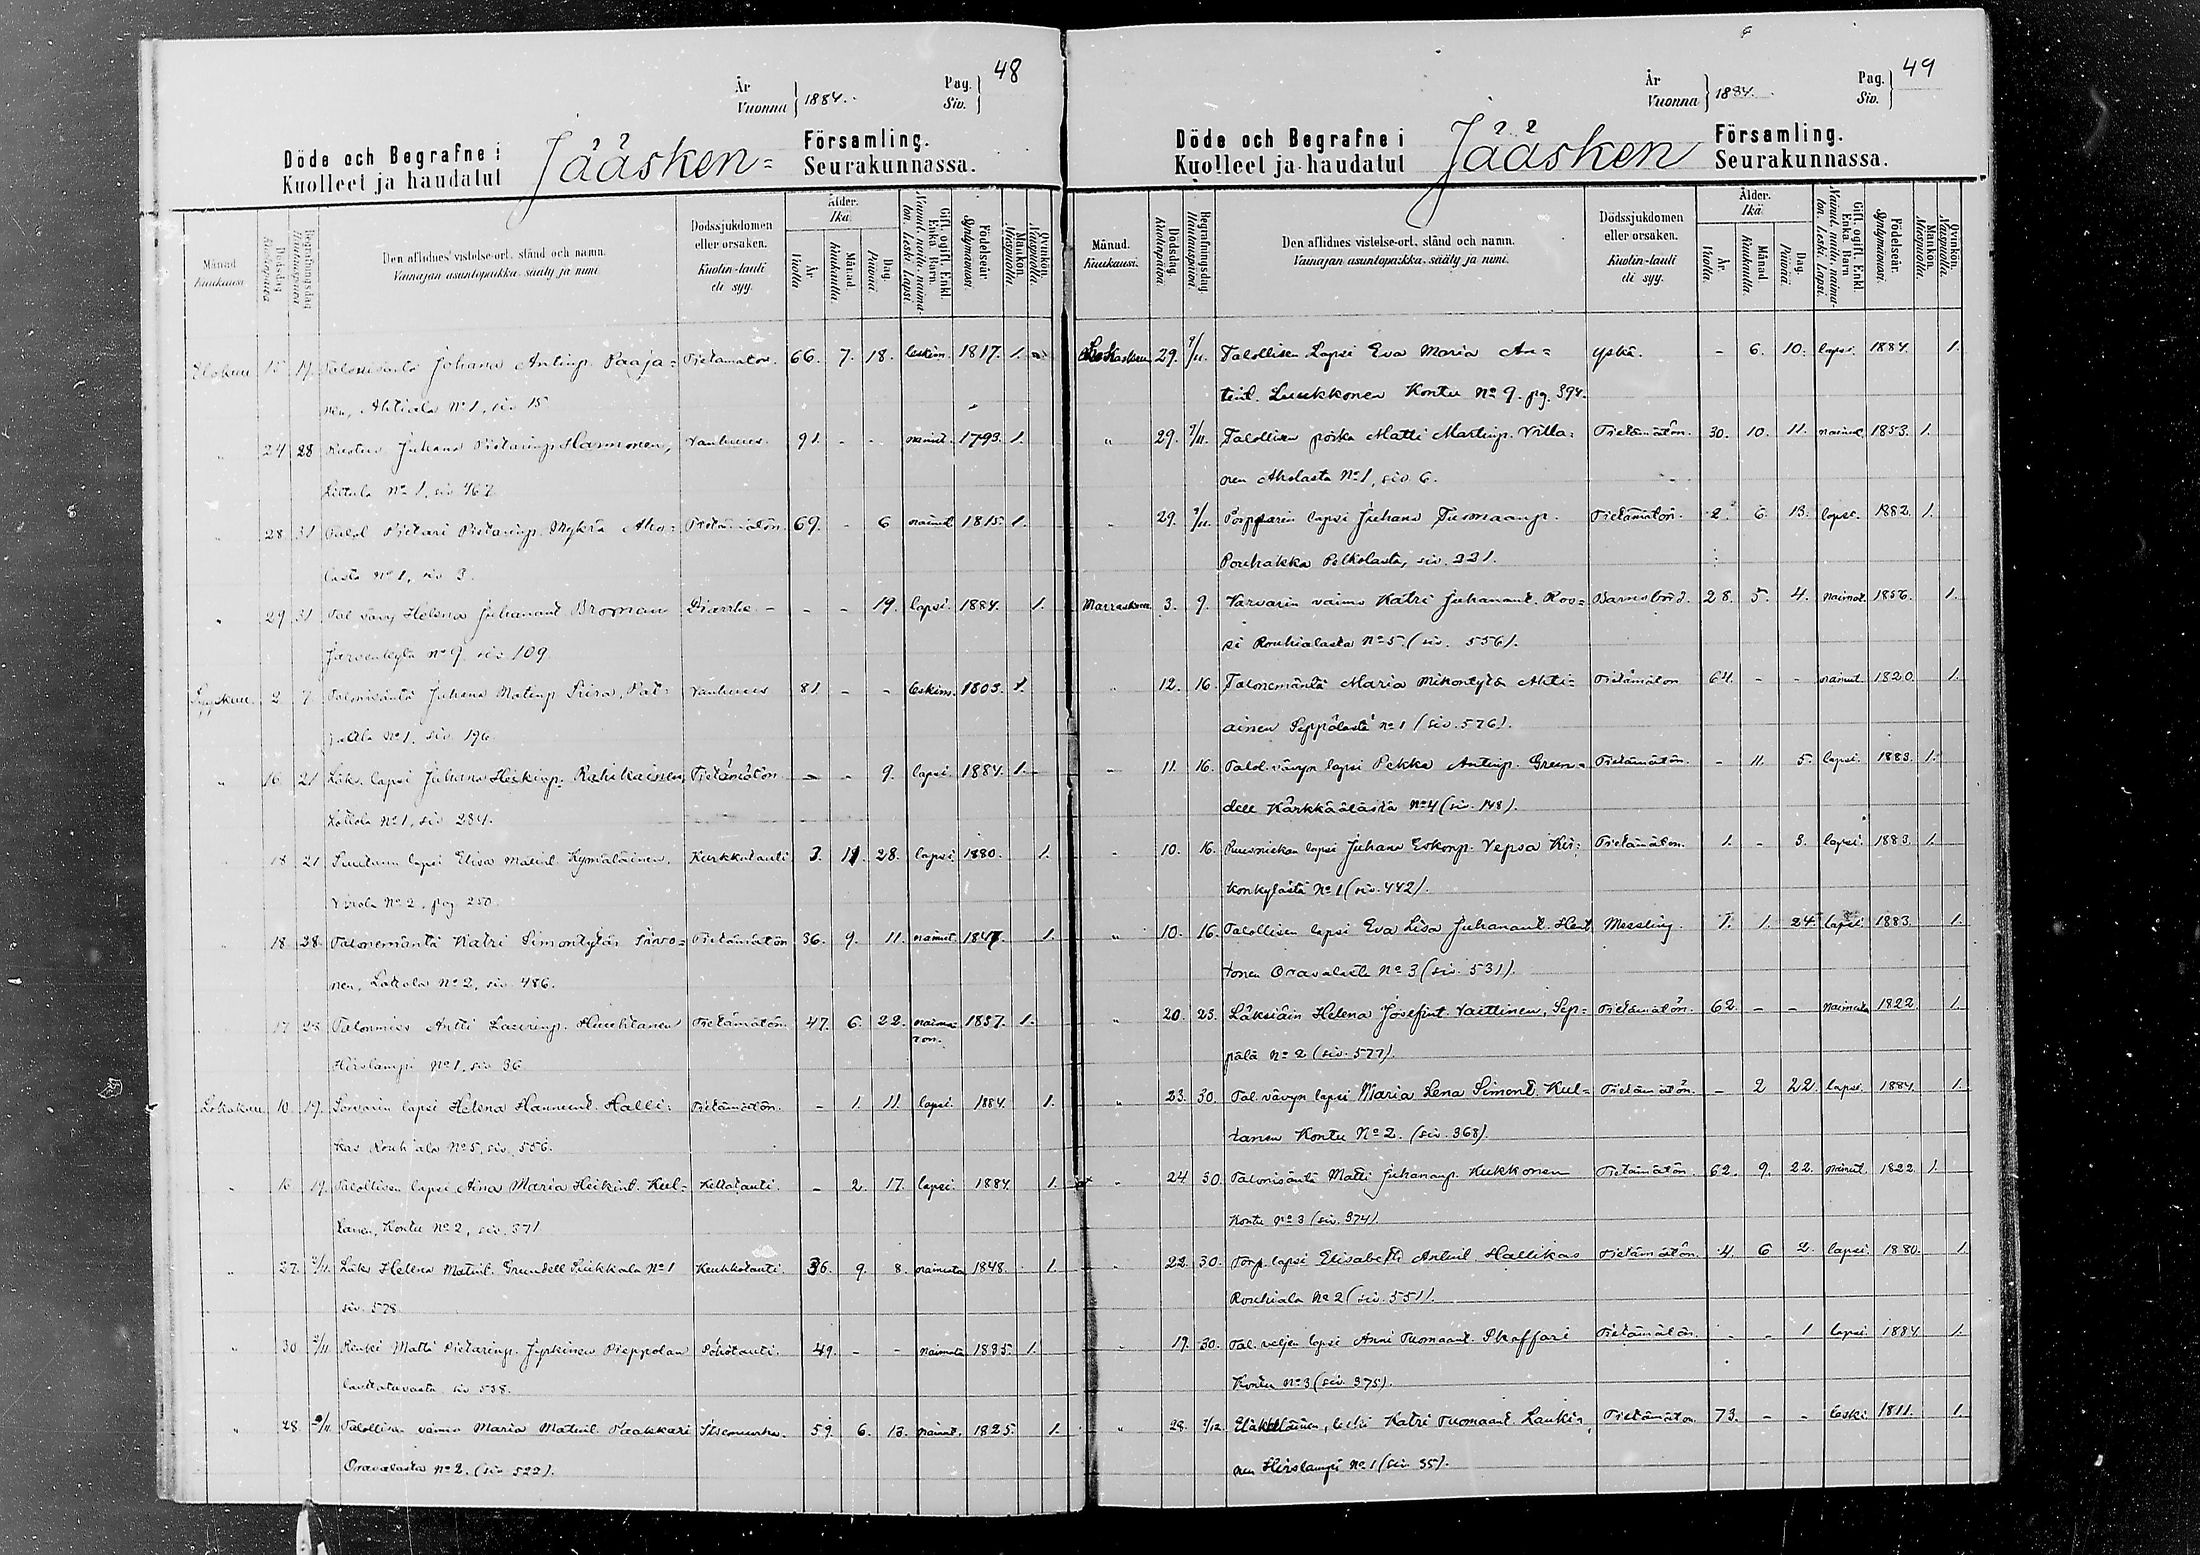 År
Vuonna } 1884.
Pag.
Siv. } 48
Döde och Begrafne i
Kuolleet ja haudatut
Jääsken
Församling.
Seurakunnassa.
Månad.
Kuukausi.
Dödsdag.
Kuolinpäivä.
Begrafningsdag.
Hautauspäivä.
Den aflidnes vistelse-ort, stånd och namn.
Vainajan asuntopaikka, sääty ja nimi.
Dödssjukdomen
eller orsaken.
Kuolin-tauti
eli syy.
Ålder.
Ikä.
År.
Vuotta.
Månad.
Kuukautta.
Dag.
Päivää.
Gift, ogift, Enkl.
Enka Barn.
Födelseår.
Syntymävuosi.
Mankön.
Miespuolta.
Qvinkön.
Elokuu 19. Talonisäntä Johana Antinp. Paaja- Tietämätön 66. 7. 18. leskim. 1817. 1.
nen, Ahtiala No 1, siv 15
" 24 28 Juhana Pietarinp. Harmonen, Vanhuus. 91. - - nainut. 1793. 1.
No 1, siv 467
" 28 31 Talol Pietari Pietarinp. Mykrä Aho- Tietämätön 69. - 6 nainut 1815. 1.
lasta No 1, siv 3.
" 29 31 Tal vävy Helena Juhanant Broman Diarrhe - - - 19. lapsi. 1884. 1.
Järvenkylä No 9 siv 109
Syyskuu. 2 7. Talonisäntä Juhana Matinp Siira, Pat- Vanhuus 81 - - leskim. 1803. 1.
jala No 1, siv. 196
" 16 21 Läks. lapsi Juhana Heikinp. Rahikainen, Tietämätön - - 9. lapsi. 1884. 1.
Kottola No 1, siv 284.
" 18 21 Suutarin lapsi Elisa Matint. Kymäläinen, Kurkkutauti 3. 11. 28. lapsi 1880. 1.
No 2, pag 250.
" 18 28. Talonemäntä Katri Simontytär Sirvo- Tietämätön 36. 9. 11. nainut. 1847. 1.
nen, Laitola No 2, siv 486.
" 17 28 Talonmies Antti Laurinp. Huuhtanen Tietämätön. 47. 6. 22. naima- 1837. 1.
ton.
Hirslampi No 1, siv 36
Lokakuu 10. 19. Sorvarin lapsi Helena Hannunt. Halli- Tietämätön. - 1. 11. lapsi. 1884. 1.
kas Rouhiala No 5, siv. 556.
" 16 19. Talollisen lapsi Aina Maria Heikint. Kul- Keltatauti. - 2. 17. lapsi. 1884. 1.
tanen, Kontu No 2, siv. 371
" 27. 2/11. Läks Helena Matint. Grundell Siikkala No 1 Keuhkotauti. 36. 9. 8. naimata 1848. 1.
siv. 578.
" 30 2/11 Renki Matti Pietarinp. Jyrkinen Pieppolan Pöhötauti. 49. - - naimata 1835. 1.
lauttatuvasta siv 538.
" 28 9/11 Talollisen vaimo Maria Matint. Paakkari 59. 6. 13. nainut. 1825. 1.
Oravalasta No 2. (siv 522).
År
Vuonna } 1884.
Pag.
Siv. } 49
Döde och Begrafne i
Kuolleet ja haudatut
Jääsken
Församling.
Seurakunnassa.
Månad.
Kuukausi.
Dödsdag.
Kuolinpäivä.
Begrafningsdag.
Hautauspäivä.
Den aflidnes vistelse-ort, stånd och namn.
Vainajan asuntopaikka, sääty ja nimi.
Dödssjukdomen
eller orsaken.
Kuolin-tauti
eli syy.
Ålder.
Ikä.
År.
Vuotta.
Månad.
Kuukautta.
Dag.
Päivää.
Gift, ogift, Enkl.
Enka Barn.
Födelseår.
Syntymävuosi.
Mankön.
Miespuolta.
Qvinkön.
Vaimopuolta.
29. 9/11. Talollisen Lapsi Eva Maria An- yskä. - 6. 10. lapsi. 1884. 1.
tint. Luukkonen Kontu No 9. pg. 394.
" 29. 9/11. Talollisen poika Matti Martinp. Villa- Tietämätön. 30. 10. 11. nainut 1853. 1.
nen Aholasta No 1, siv. 6.
" 29. 9/11. Torpparin lapsi Juhana Tuomaanp. Tietämätön. 2. 6. 13. lapsi. 1882. 1.
Pouhakka Pelkolasta, siv. 221.
Marraskuu 3. 9. Varvarin vaimo Katri Juhanant. Ros- Barnsbörd. 28. 5. 4. nainut. 1856. 1.
si Rouhialasta No 5. (siv. 556).
" 12. 16. Talonemäntä Maria Mikontytär Ahti- Tietämätön 64. - - nainut 1820. 1.
ainen Seppälästä No 1 (siv. 576).
" 11. 16. Talol. vävyn lapsi Pekka Antinp. Grun- Tietämätön. - 11. 5. lapsi. 1883. 1.
dell Kärkkäälästä No 4 (siv. 148).
" 10. 16. Ruusniekan lapsi Juhana Eskonp. Vepsä Kir- Tietämätön. 1. - 3. lapsi. 1883. 1.
konkylästä No 1 (siv. 442).
" 10. 16. Talollisen lapsi Eva Lisa Juhanant. Hent- Messling. 1. 1. 24. lapsi. 1883. 1.
tonen Oravalasta No 3 (siv. 531).
" 20. 23. Läksiäin Helena Josefint. Vaittinen, Sep- Tietämätön. 62. - - naimata 1822. 1.
pälä No 2 (siv. 577).
" 23. 30. Tal. vävyn lapsi Maria Lena Simont. Kul- Tietämätön. - 2 22. lapsi. 1884. 1.
tanen Kontu No 2. (siv. 368).
" 24 30. Talonisäntä Matti Juhananp. Kukkonen Tietämätön. 62. 9. 22. nainut. 1822. 1.
Kontu No 3 (siv. 374).
" 22. 30. Torp. lapsi Elisabetti Antint. Hallikas Tietämätön. 4. 6 2. lapsi. 1880. 1.
Rouhiala No 2 (siv. 551).
" 19. 30. Tal. veljen lapsi Anni Tuomaant. Skaffari Tietämätön. - - 1 lapsi. 1884. 1.
Kontu No 3 (siv. 375).
" 28. 7/12. Eläkeläinen, leski Katri Tuomaant. Lauki- Tietämätön 73. - - leski 1811. 1.
nen Hirslampi No 1 (siv. 35).